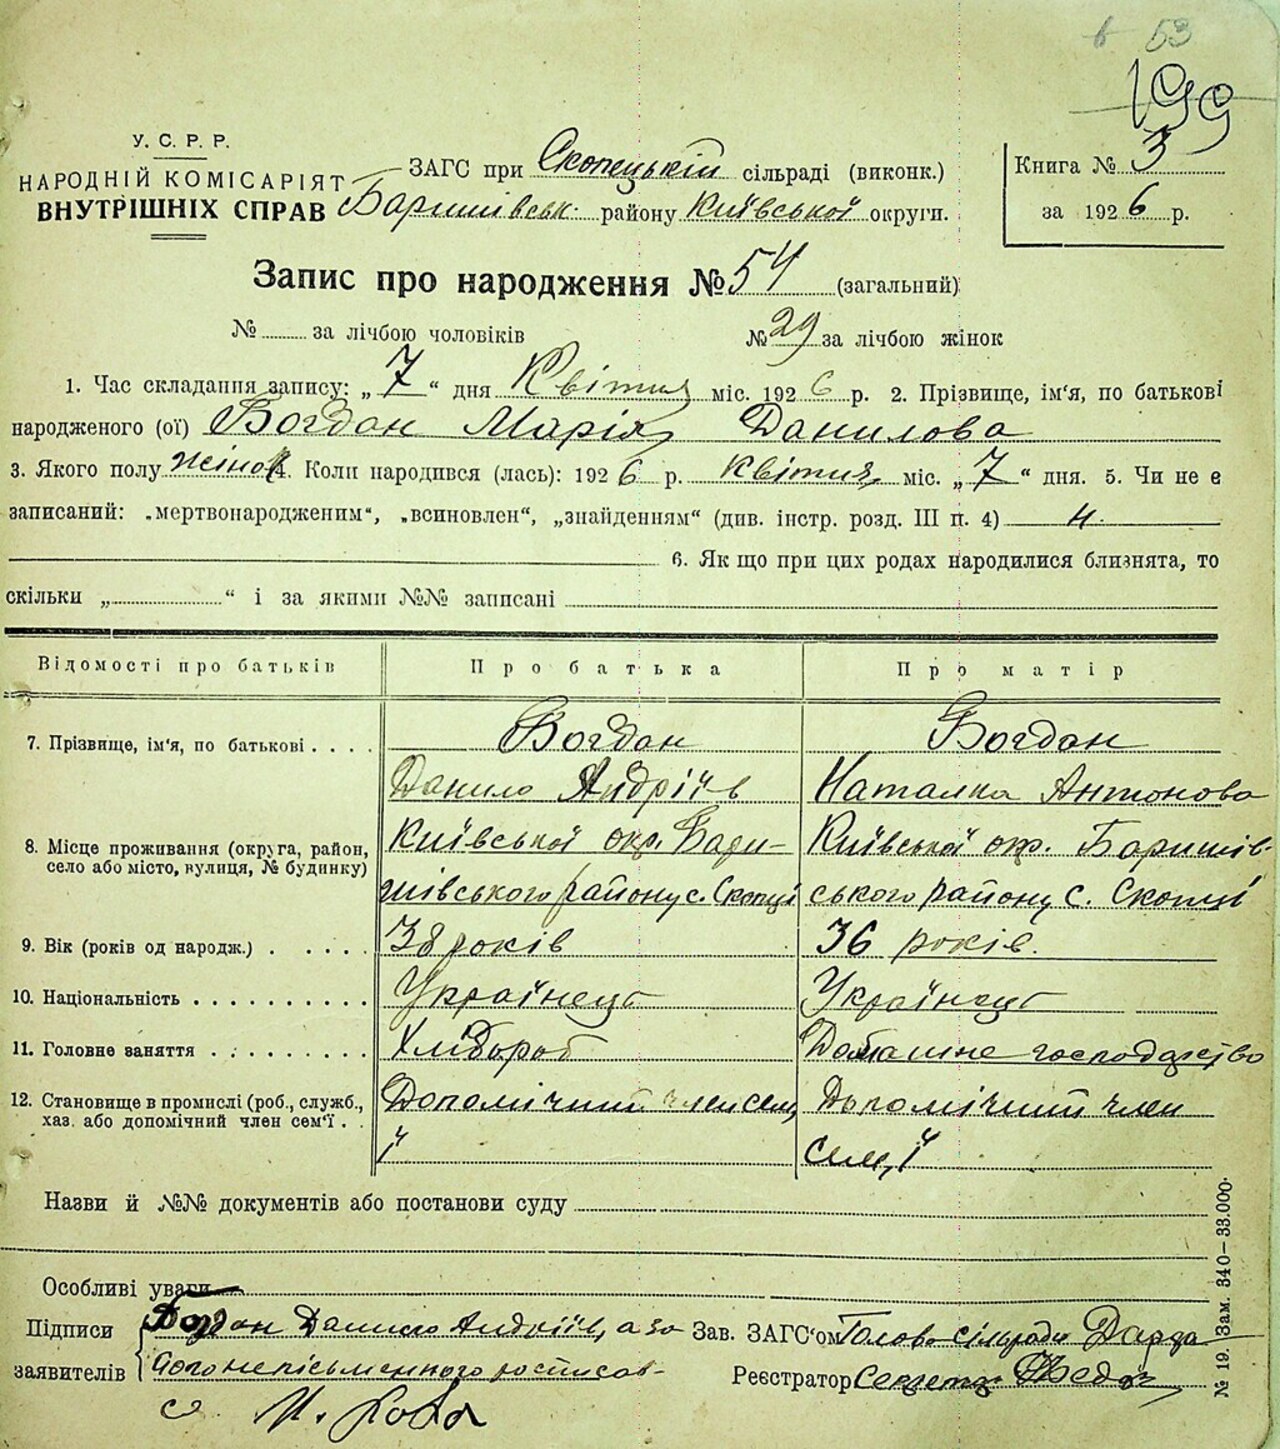 53
199
У. С. Р. Р.
НАРОДНІЙ КОМІСАРІЯТ
ВНУТРІШНІХ СПРАВ
ЗАГС при Скопецькій сільраді (виконк.)
Баришівськ. району Київської округи.
Книга № 3
за 1926 р.
Запис про народження № 54 (загальний)
№ за лічбою чоловіків № 29 за лічбою жінок
1. Час складання запису: „ 7 “ дня Квітня міс. 1926 р. 2. Прізвище, ім'я, по батькові
народженого (ої) Богдан Марія Данилова
3. Якого полу жіноч 4. Коли народився (лась): 1926 р. квітня міс. „ 7 “ дня. 5. Чи не є
записаний: „мертвонародженим“, „всиновлен“, „знайденням“ (див. інстр. розд. III п. 4) н.
6. Як що при цих родах народилися близнята, то
скільки „ “ і за якими №№ записані
Відомості про батьків Про батька Про матір
7. Прізвище, ім'я, по батькові . . . . Богдан Богдан
Данило Андріїв Наталка Антонова
8. Місце проживання (округа, район, село або місто, вулиця, № будинку) Київської окр. Бари- Київської окр. Баришів-
шівського району с. Скопці ського району с. Скопці
9. Вік (років од народж.) . . . . . 38 років 36 років.
10. Національність . . . . . . . . . . Українець Українець
11. Головне заняття . . . . . . . . . Хлібороб Домашне господарство
12. Становище в промислі (роб., служб., хаз. або допомічний член сем'ї . . Допомічний член сем, Допомічний член
ї сем,ї
Назви й №№ документів або постанови суду
Особливі уваги
Підписи заявителів Богдан Данило Андріїв, а за Зав. ЗАГС'ом Голова сільради Дарда
його непісьменного росписав- Реєстратор Секретар
ся И.
№ 19. Зам. 340—33.000.